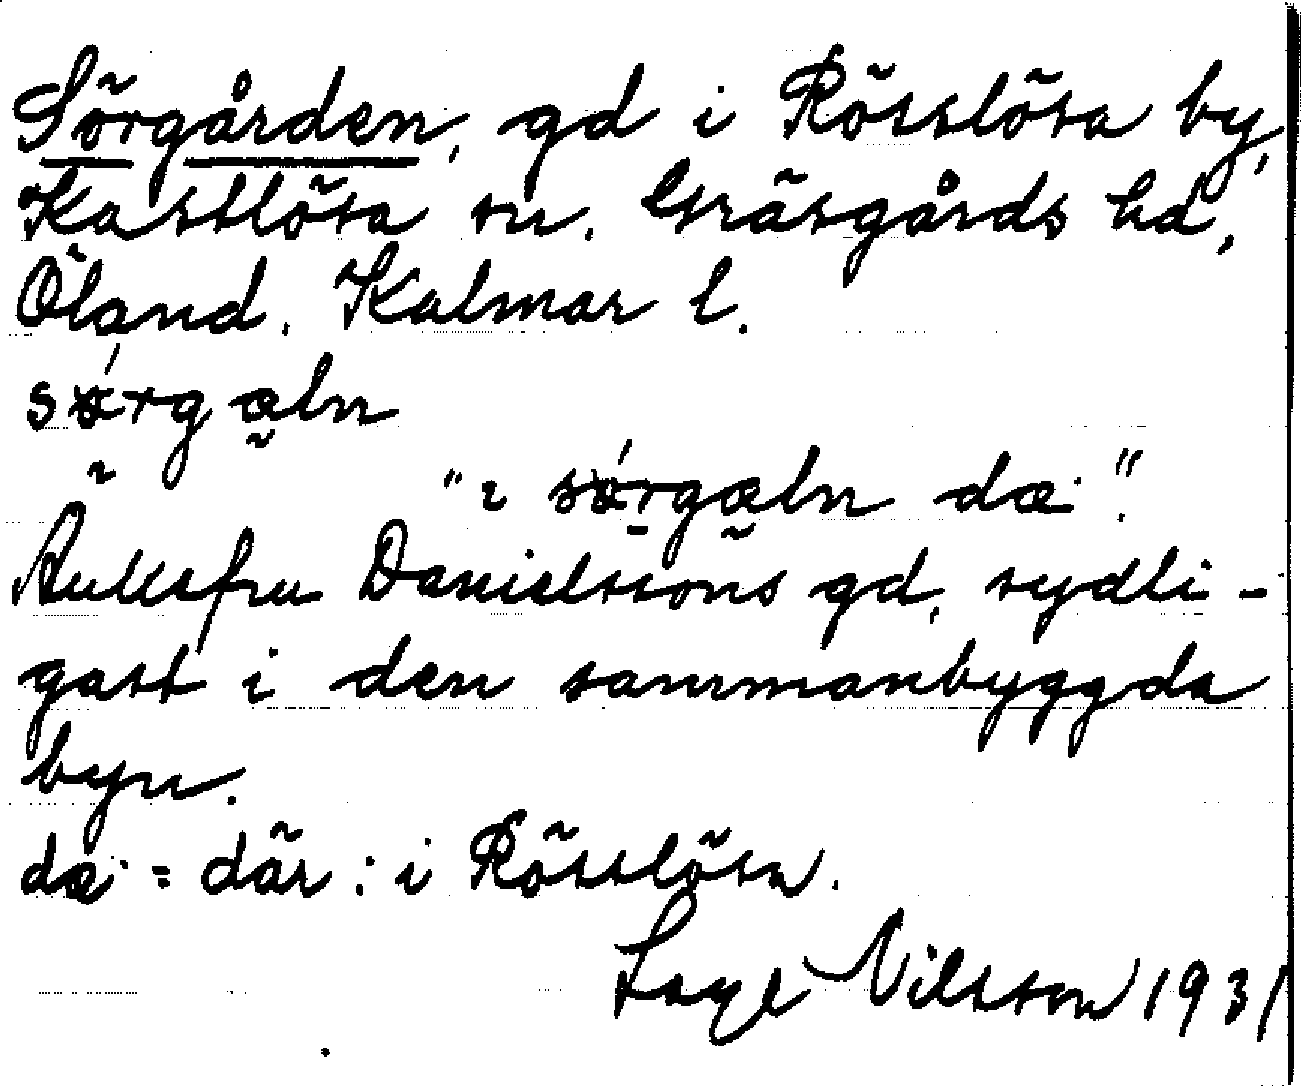 Sörgården, gd i Rösslösa by,
Kastlösa sn. Gräsgårds hd,
Öland. Kalmar l.
sörgæln
"ı sörgæln dæ·".
Änkefru Danielssons gd, sydli-
gast i den sammanbyggda
byn.
dæ· = där: i Rösslösa.
Inge Nilsson 1931